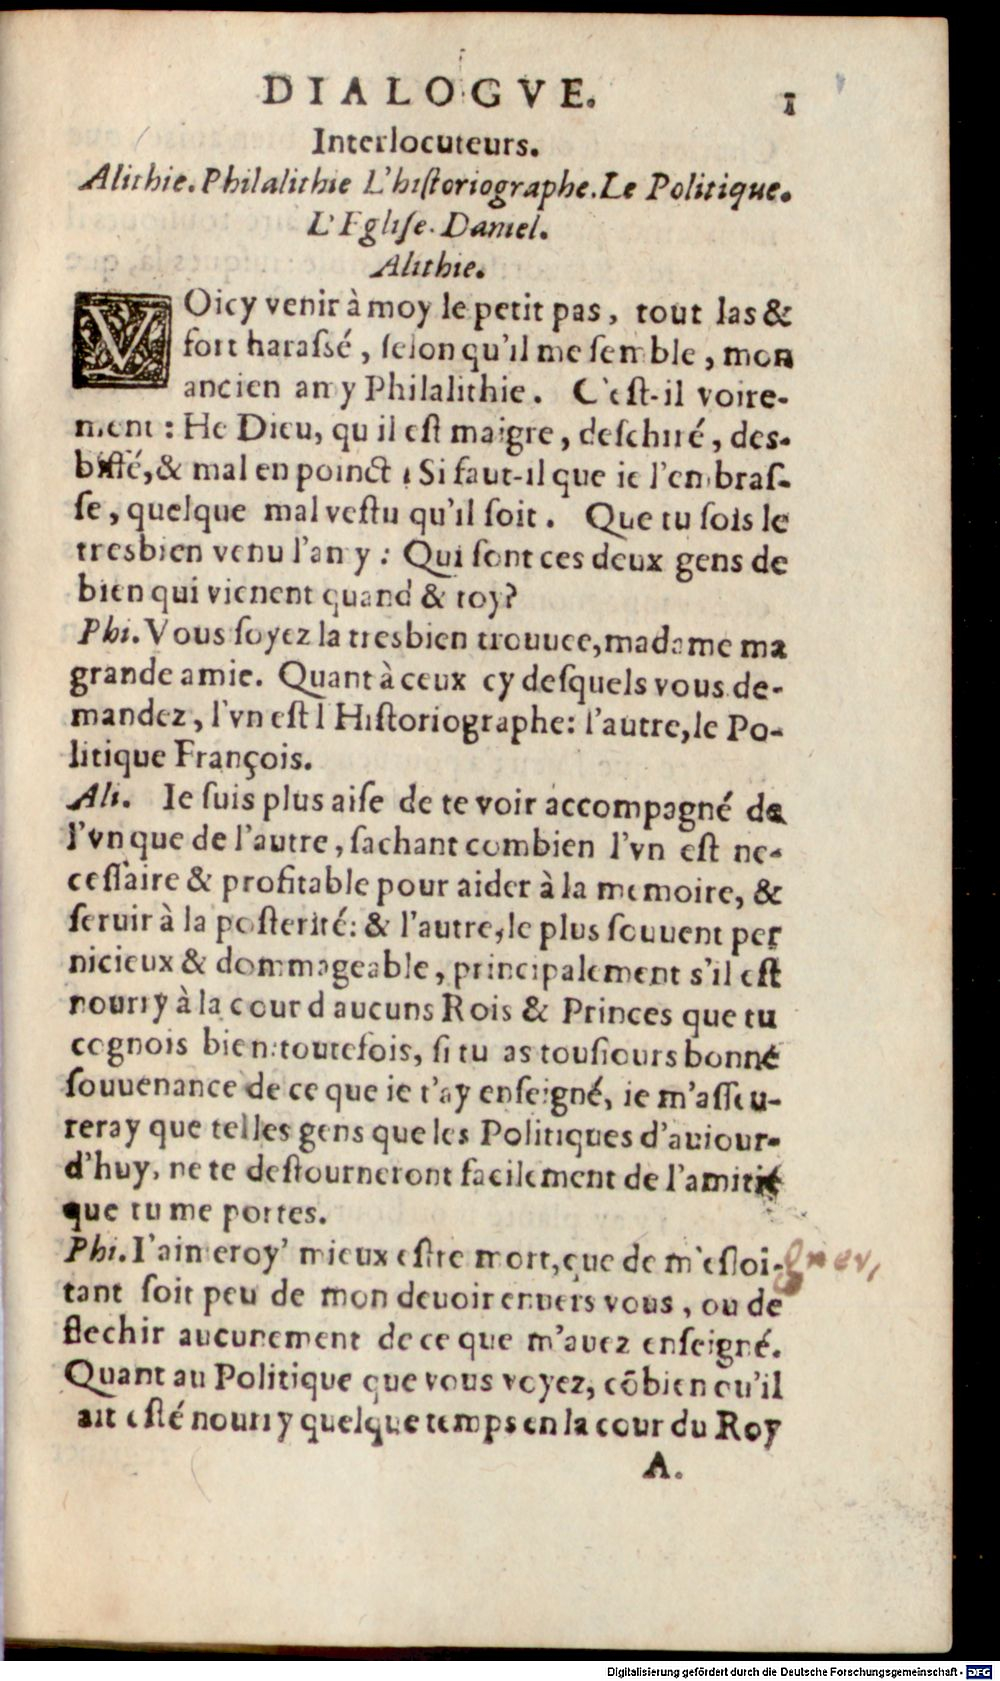 DIALOGVE. 1
Interlocuteurs.
Alithie. Philalithie L'historiographe. Le Politique.
L'Eglise. Daniel.
Alithie.
VOicy venir à moy le petit pas, tout las &
fort harassé, selon qu'il me semble, mon
ancien amy Philalithie. C'est-il voire-
ment: He Dieu, qu il est maigre, deschiré, des-
biffé, & mal en poinct! Si faut-il que ie l'embras-
se, quelque mal vestu qu'il soit. Que tu sois le
tresbien venu l'amy: Qui sont ces deux gens de
bien qui vienent quand & toy?
Phi. Vous soyez la tresbien trouuee, madame ma
grande amie. Quant à ceux cy desquels vous de-
mandez, l'vn est l Historiographe: l'autre, le Po-
litique François.
Ali. Ie suis plus aise de te voir accompagné de
l'vn que de l'autre, sachant combien l'vn est ne-
cessaire & profitable pour aider à la memoire, &
seruir à la posterité: & l'autre, le plus souuent per
nicieux & dommageable, principalement s'il est
nourry à la cour d aucuns Rois & Princes que tu
cognois bien: toutefois, si tu as tousiours bonne
souuenance de ce que ie t'ay enseigné, ie m'asseu-
reray que telles gens que les Politiques d'auiour-
d'huy, ne te destourneront facilement de l'amitié
que tu me portes.
Phi. I'aimeroy' mieux estre mort, que de m'esloi-gner,
tant soit peu de mon deuoir enuers vous, ou de
flechir aucunement de ce que m'auez enseigné.
Quant au Politique que vous voyez, cõbien qu'il
ait esté nourry quelque temps en la cour du Roy
A.
Digitalisierung gefördert durch die Deutsche Forschungsgemeinschaft - DFG